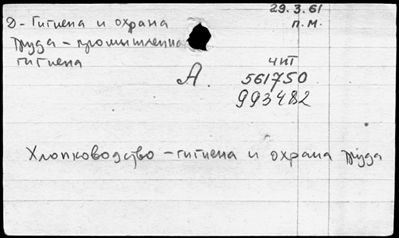 29.3.61
Д-Гигиена и охрана
п.м.
труда - промышленна
гигиена
чит
А.
561750
993482
Хлопководство - гигиена и охрана труда